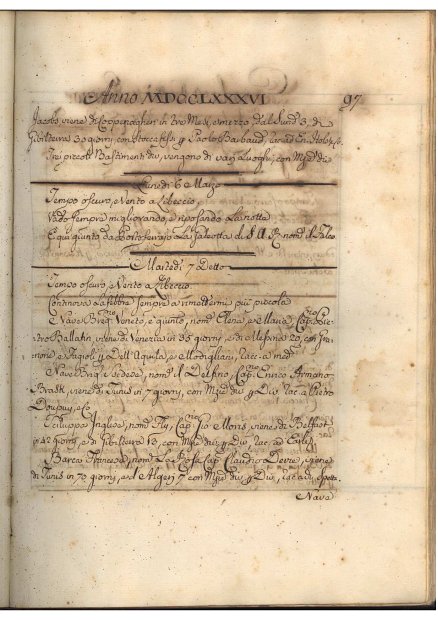 Anno MDCCLXXXVI 97.
Jacobs viene di Coppenaghen in tre Mesi, e mezzo, dal Sund 3, di
Gibilterra 30 giorni, con Stoccafissi p Paolo Baibaud,
Tre piccoli Bastimenti diu, vengono di varj Luoghi, con Mzie diu
Lunedì 6 Marzo
Tempo oscuro, e Vento a Libeccio
Vado sempre migliorando, e riposando La notte
È qui giunto da Portoferrajo La Galeotta di S. A. R. nom. il Falco
Martedì 7 Detto
Tempo oscuro, e Vento a Libeccio
Continova La febbre sempre a rimettermi più piccola
Nave Brig.no Veneto, è giunto, nom. Elena, e Maria, Cap.
tro Ballarin, viene di Venezia in 35 giorni, e di Messina 20, con Gra
none, e Fagioli p Dell'Aquila, e Modigliani, rac. a med
Nave Brig. Svedese, nom. il Delfino, Cap.no Enrico Armano
Brask, viene di Tunis in 7 giorni, con Mzie diu p Diu, rac. a Pietro
Dupuy, e
Sciluppo Inglese, nom. Fly, Cap. Gio Moris, viene di Belfast
in 42 giorni, e di Gibilterra 12, con Mzie diu p Diu, rac. ad
Barca Francese, nom. La Rosa, Cap. Claudio Deure, viene
di Tunis in 70 giorni, e d'Algeri 7 con Mzie diu p Diu,
Nava